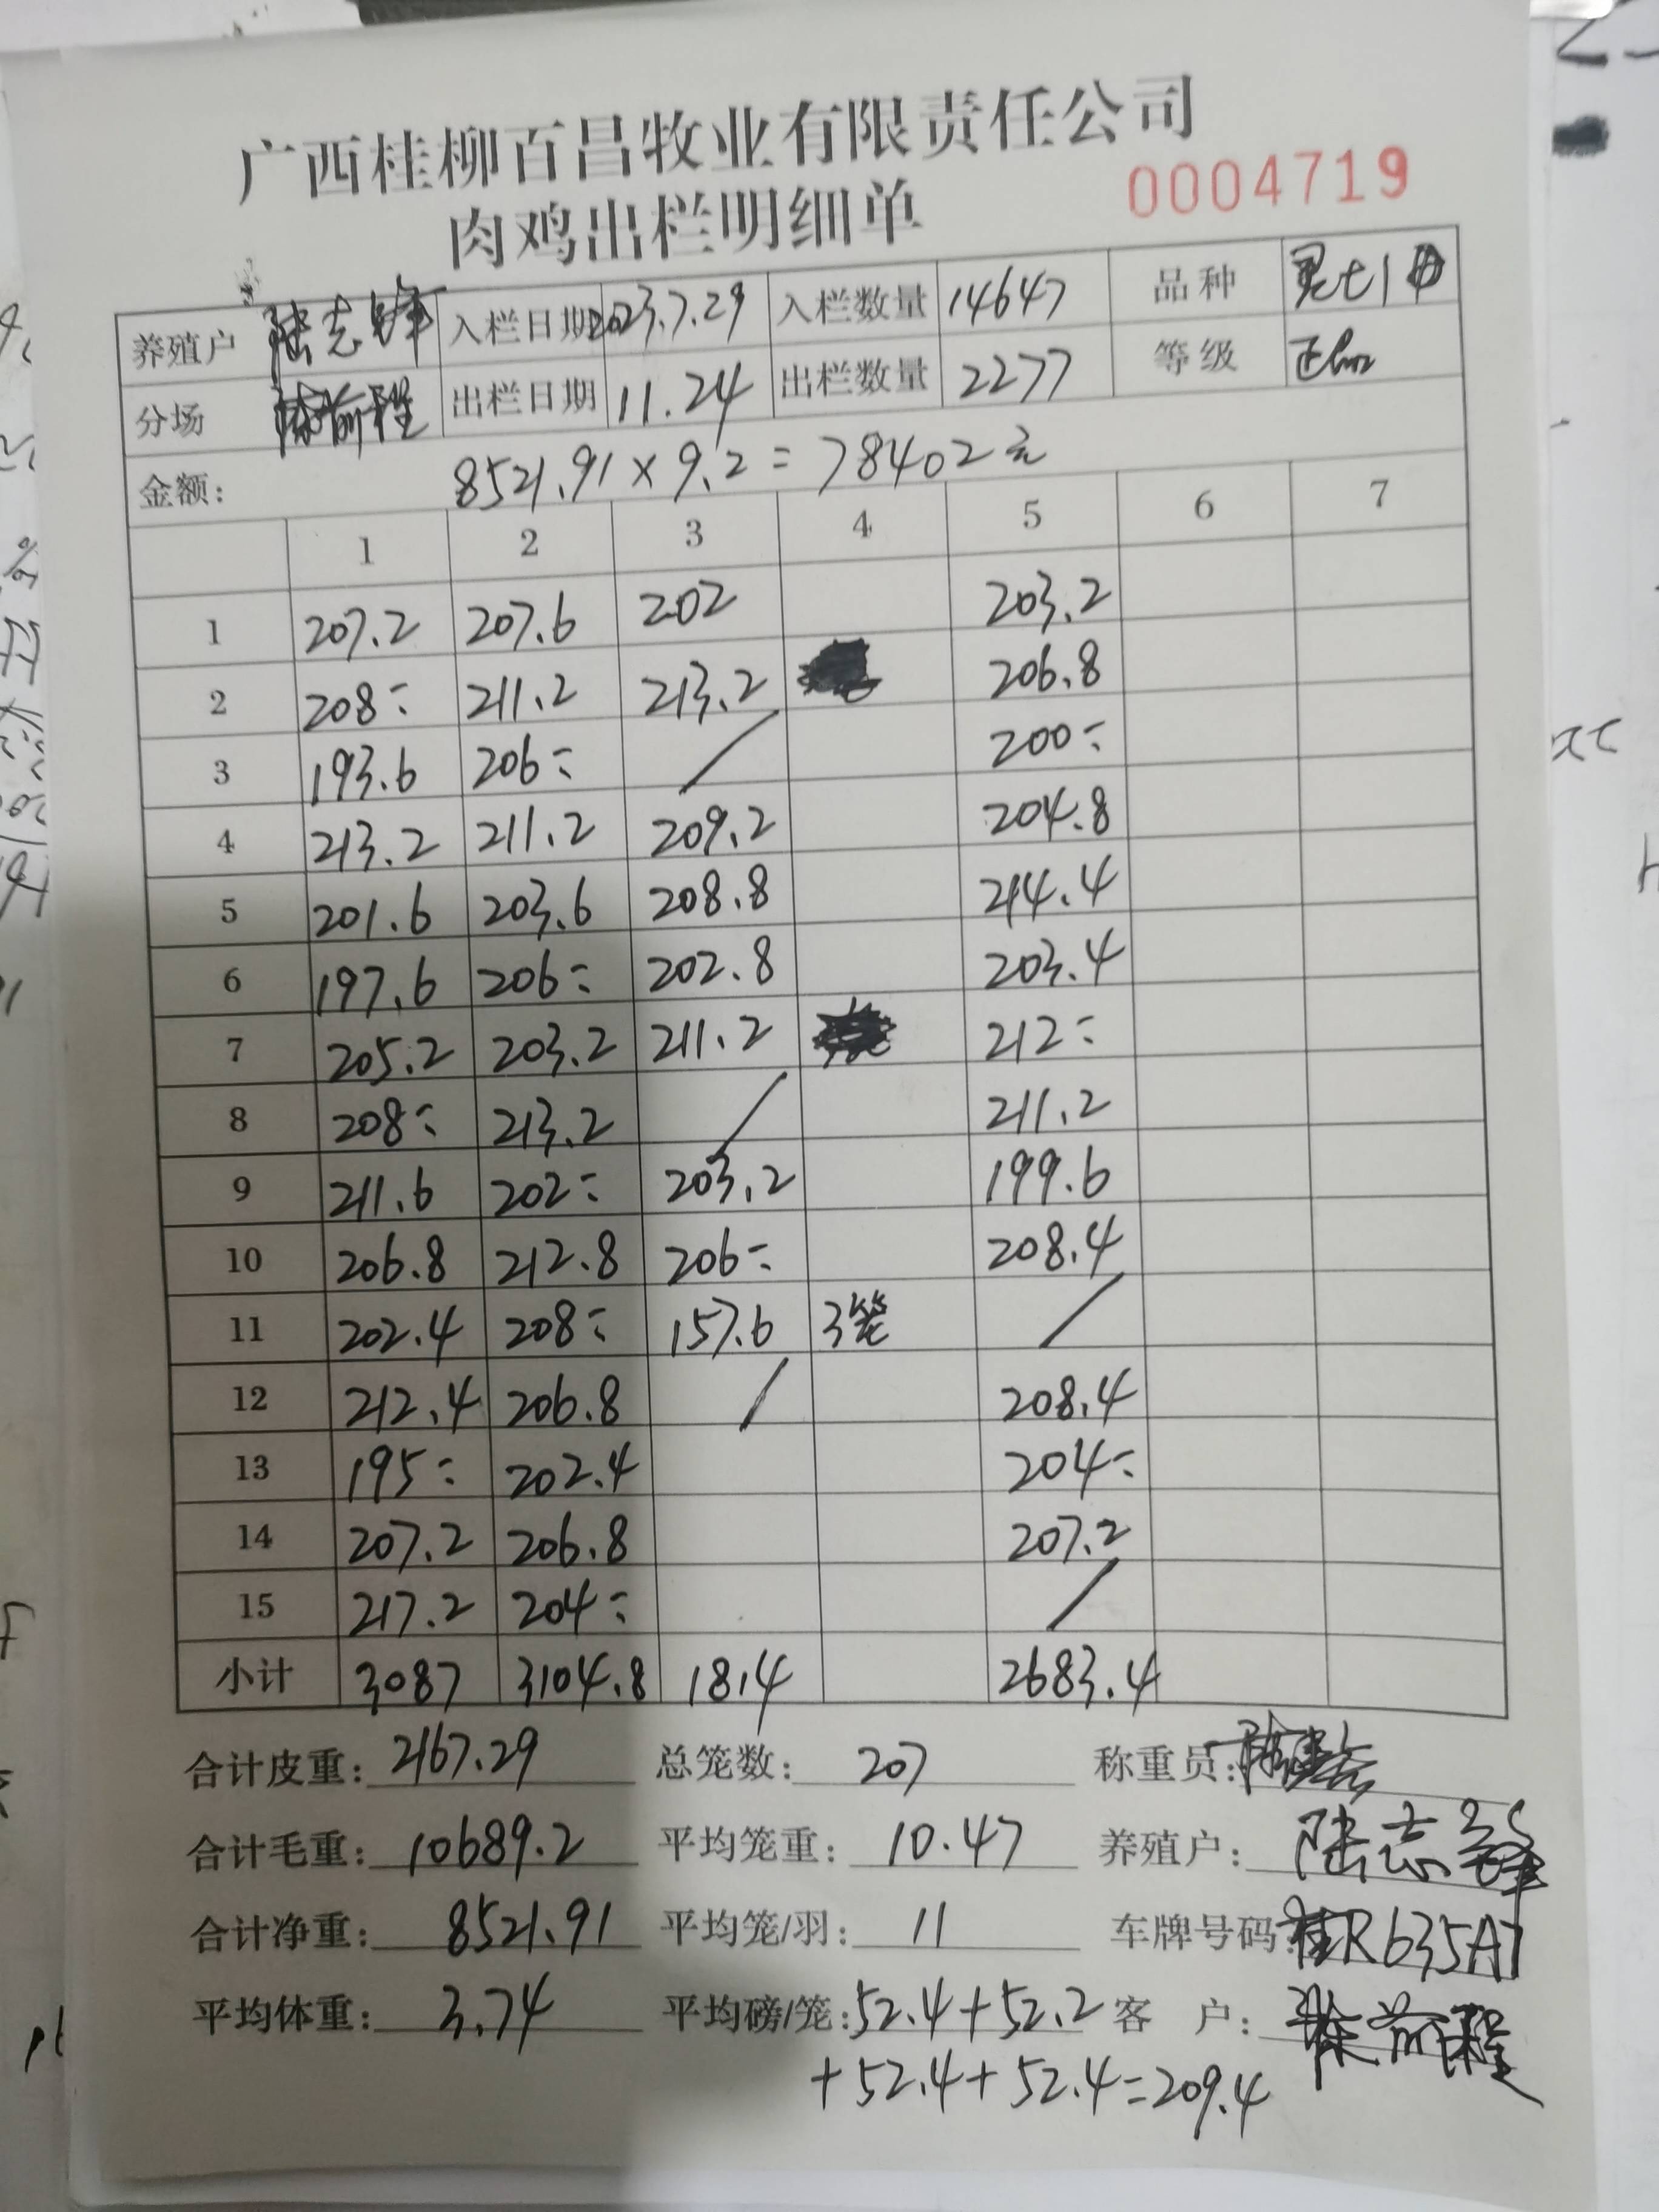 广西桂柳百昌牧业有限责任公司
肉鸡出栏明细单 0004719
养殖户 陆志锋 入栏日期 2023.7.29 入栏数量 14647 品种
分场 前程 出栏日期 11.24 出栏数量 2277 等级
金额: 8521.91×9.2=78402元
1 2 3 4 5 6 7
1 207.2 207.6 202 203.2
2 208: 211.2 213.2 206.8
3 193.6 206: / 200:
4 213.2 211.2 209.2 204.8
5 201.6 203.6 208.8 214.4
6 197.6 206: 202.8 203.4
7 205.2 203.2 211.2 212:
8 208: 213.2 / 211.2
9 211.6 202: 203.2 199.6
10 206.8 212.8 206: 208.4
11 202.4 208: 157.6 3笼 /
12 212.4 206.8 / 208.4
13 195: 202.4 204:
14 207.2 206.8 207.2
15 217.2 204: /
小计 3087 3104.8 1814 2683.4
合计皮重: 2167.29 总笼数: 207 称重员:
合计毛重: 10689.2 平均笼重: 10.47 养殖户: 陆志锋
合计净重: 8521.91 平均笼/羽: 11 车牌号码: 桂R635A7
平均体重: 3.74 平均磅/笼: 52.4+52.2 客 户: 前程
+52.4+52.4=209.4